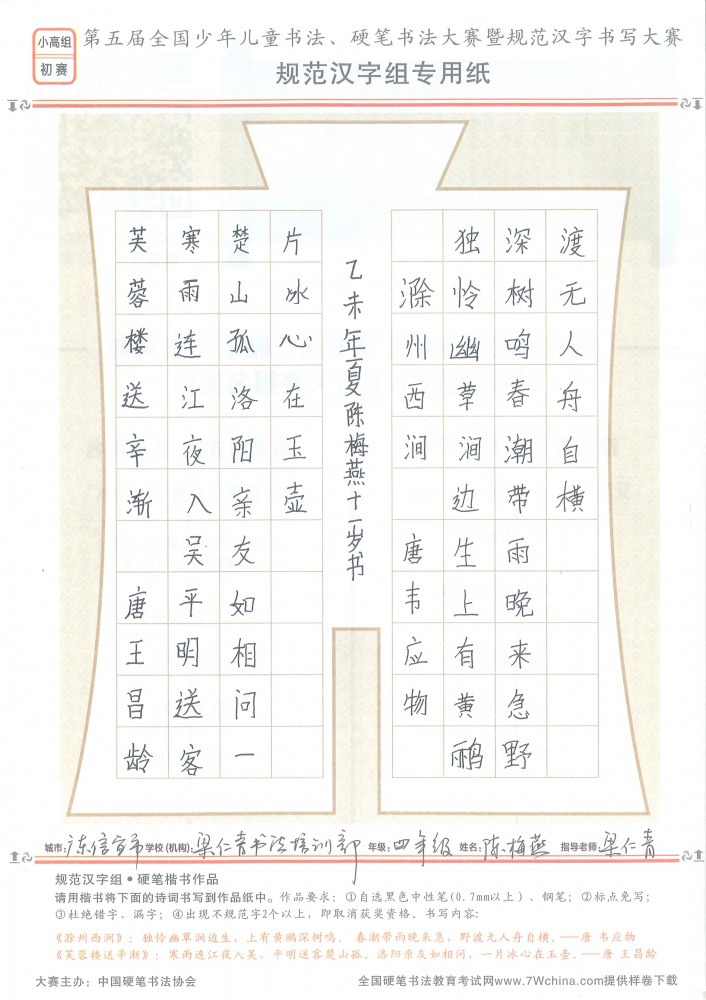 小高组
初赛
第五届全国少年儿童书法、硬笔书法大赛暨规范汉字书写大赛
规范汉字组专用纸
芙蓉楼送辛渐 唐王昌龄
寒雨连江夜入吴平明送客
楚山孤洛阳亲友如相问一
片冰心在玉壶
乙未年夏陈梅燕十一岁书
滁州西涧 唐韦应物
独怜幽草涧边生上有黄鹂
深树鸣春潮带雨晚来急野
渡无人舟自横
城市:广东信宜市 学校(机构):梁仁青书法培训部 年级:四年级 姓名:陈梅燕 指导老师:梁仁青
规范汉字组•硬笔楷书作品
请用楷书将下面的诗词书写到作品纸中。作品要求：①自选黑色中性笔(0.7mm以上)、钢笔；②标点免写；
③杜绝错字、漏字；④出现不规范字2个以上，即取消获奖资格。书写内容：
《滁州西涧》：独怜幽草涧边生，上有黄鹂深树鸣。春潮带雨晚来急，野渡无人舟自横。——唐 韦应物
《芙蓉楼送辛渐》：寒雨连江夜入吴，平明送客楚山孤。洛阳亲友如相问，一片冰心在玉壶。——唐 王昌龄
大赛主办：中国硬笔书法协会 全国硬笔书法教育考试网www.7Wchina.com提供样卷下载